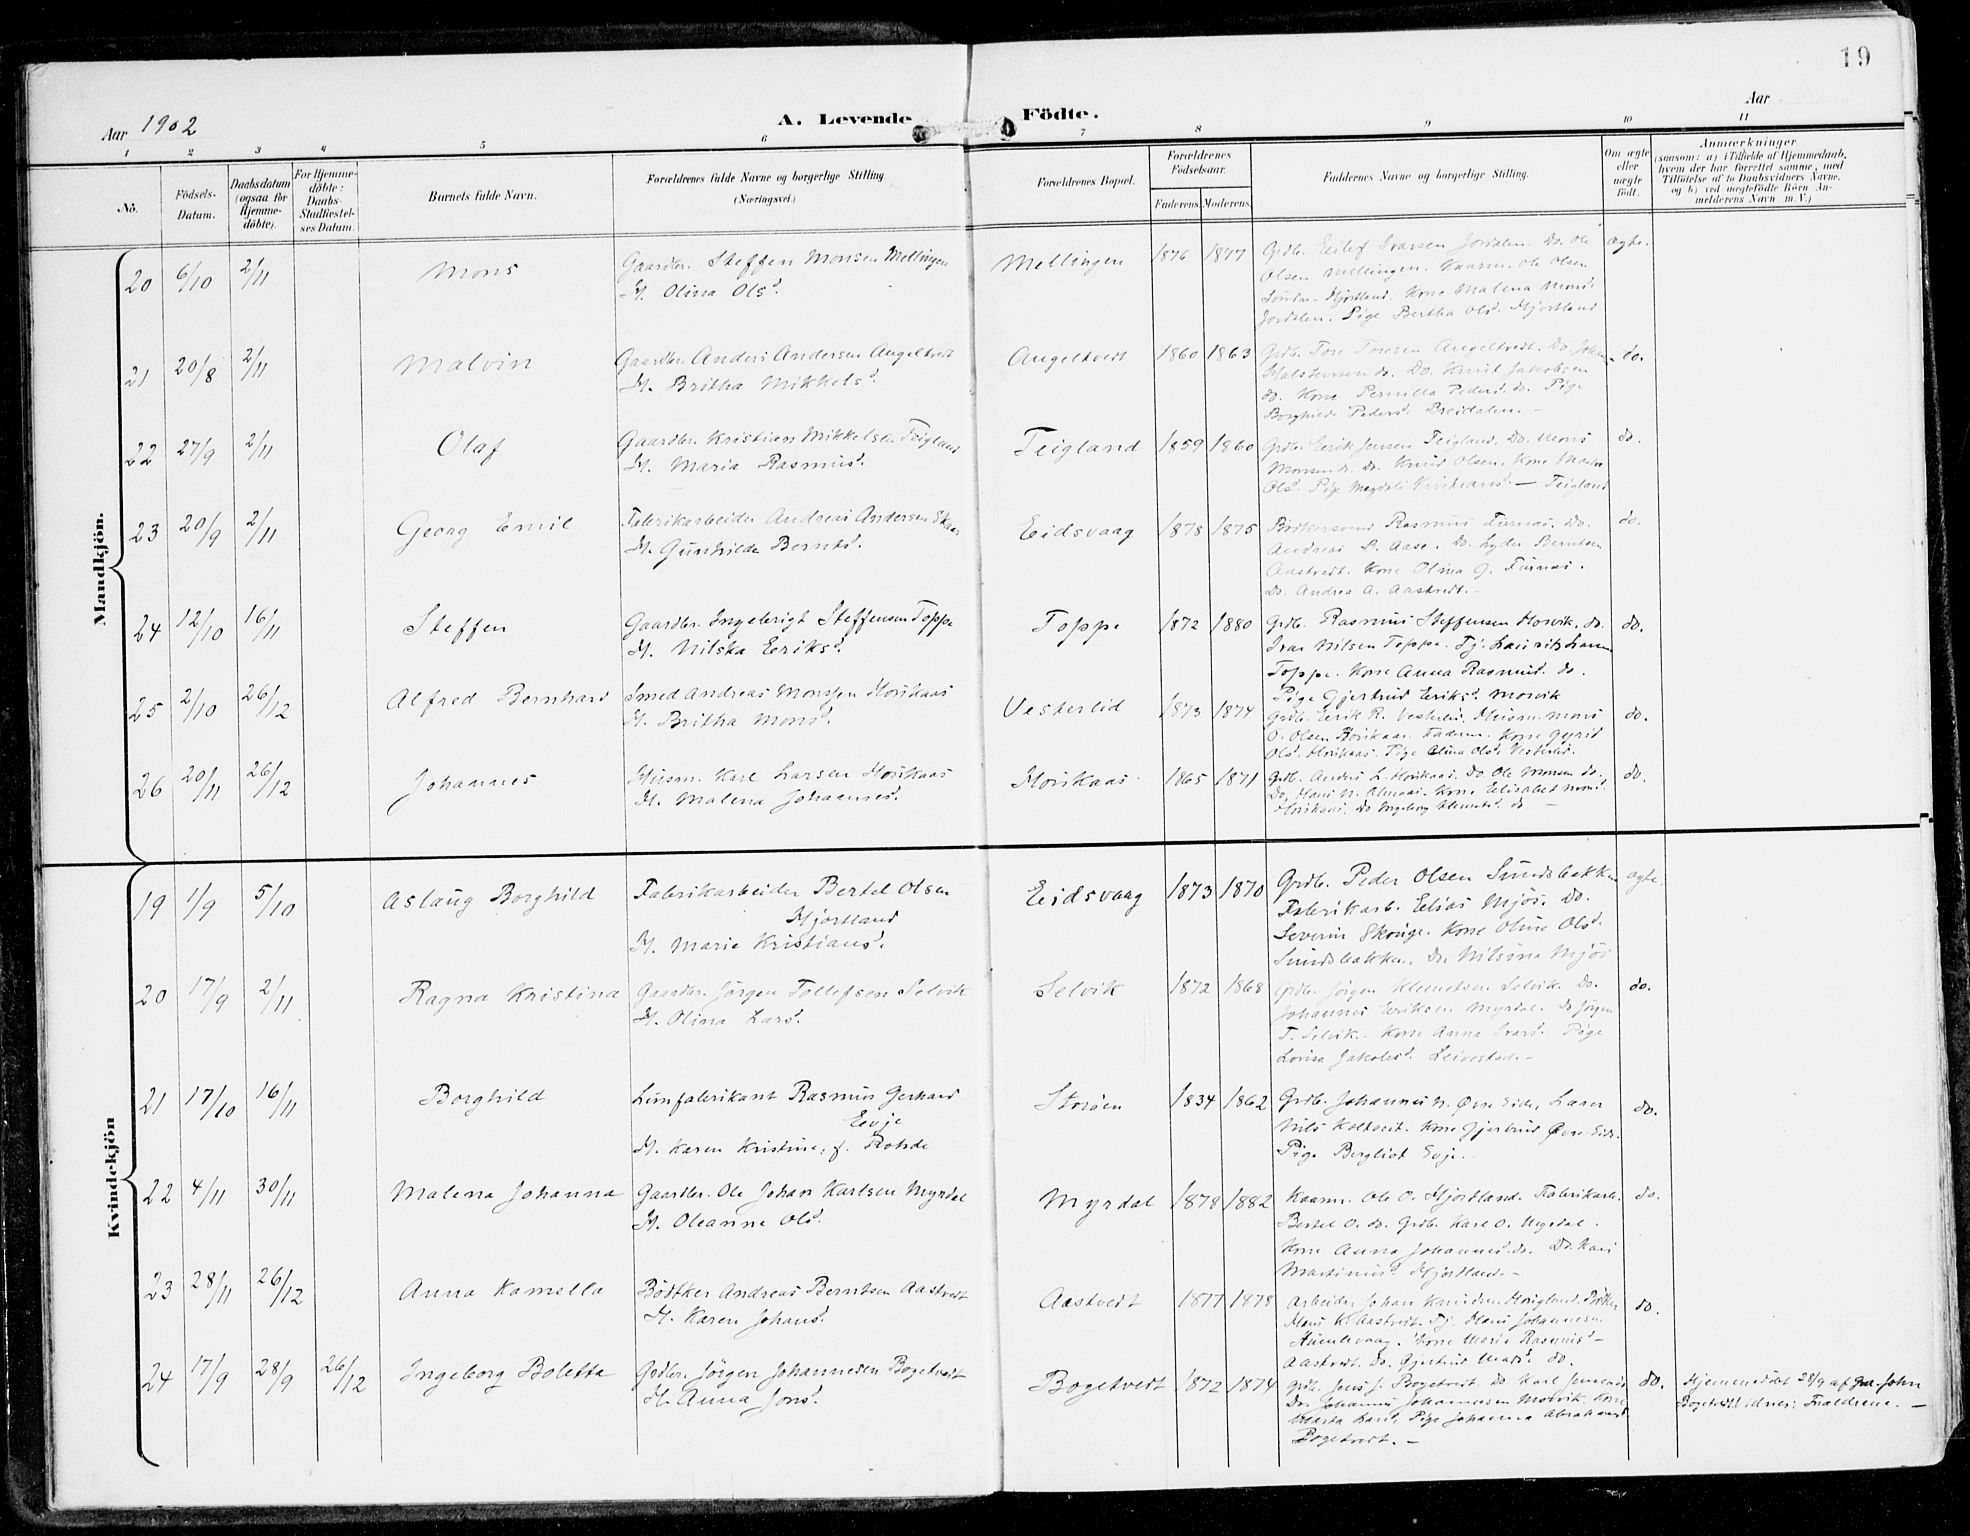 19
Aar 1902
A. Levende Födte.
Aar
1 2 3 4 5 6 7 8 9 10 11
No.
Födsels-Datum.
Daabsdatum (ogsaa for Hjemme-döbte).
For Hjemme-döbte: Daabs-Stadfæstel-ses Datum.
Barnets fulde Navn.
Forældrenes fulde Navne og borgerlige Stilling (Næringsvei.)
Forældrenes Bopæl.
Forældrenes Födselsaar.
Faderens. Moderens.
Faddernes Navne og borgerlige Stilling.
Om ægte eller uægte född.
Anmærkninger
(saasom: a) i Tilfælde af Hjemmedaab,
hvem der har forrettet samme, med
Tilföielse af to Daabsvidners Navne,
og b) ved uægtefödte Börn An-
melderens Navn m. V.)
Mandkjön.
20 6/10 2/11 Mons
Gaardbr. Steffen Monsen Mellingen
H. Olina Olsd.
Mellingen 1876 1877
Grdb. Eilef Ivarsen Jordalen. Do. Ole
Olsen Mellingen. Kaarm. Ole Olsen
Söndre-Hjortland. Kone Malena Monsd.
Jordalen. Pige Bertha Olsd. Hjortland
ægte.
21 20/8 2/11 Malvin
Gaardbr. Anders Andersen Angeltvedt
H. Britha Mikkelsd.
Angeltvedt 1860 1863
Grdb. Tore Toresen Angeltvedt. Do. Johan
Halstensen do. Do. Knut Jakobsen
do. Kone Pernilla Pedersd. do. Pige
Borghilde Pedersd. Breidalen. —
do.
22 27/9 2/11 Olaf
Gaardbr. Kristian Mikkelsen Teigland
H. Maria Rasmusd.
Teigland 1859 1860
Grdb. Eerik Jensen Teigland. Do. Mons
Monsen do. Do. Knud Olsen. Kone
Olsd. Pige Magdeli Kristiansd. — Teigland
do.
23 20/9 2/11 Georg Emil
Fabrikarbeider Andreas Andersen
H. Gunhilde Berntsd.
Eidsvaag 1878 1875
Rasmus Furnæs. Do.
Andreas B. Aase. Do. Lyder Berntsen
Aastvedt. Kone Olina G. Furnæs.
Do. Andrea A. Aastvedt. —
do.
24 12/10 16/11 Steffen
Gaardbr. Ingebrigt Steffensen Toppe
H. Nilska Eeriksd.
Toppe 1872 1880
Grdb. Rasmus Steffensen Morvik. do.
Ivar Nilsen Toppe. Tj. Laurits Larsen
Toppe. Kone Anna Rasmusd. do.
Pige Gjertrud Eeriksd. Morvik
do.
25 2/10 26/12 Alfred Bernhard
Smed Andreas Monssen Horikaas
H. Britha Monsd.
Vesterlid 1873 1874
Grdb. Eerik R. Vesterlid. Husm. Mons
O. Olsen Horikaas. Faderen. Kone Gyrid
Olsd. Horikaas. Pige Olina Olsd. Vesterlid.
do.
26 20/11 26/12 Johannes
Husm. Karl Larsen Horikaas
H. Malena Johannesd.
Horikaas 1865 1871
Grdb. Anders L. Horikaas. Do. Ole Monsen do.
Do. Hans N. Kone Elisabet Monsd.
Horikaas. Do. Ingeborg Klemetsd. do. —
do.
Kvindekjön
19 1/9 5/10 Aslaug Borghild
Fabrikarbeider Bertel Olsen
Hjortland
H. Marie Kristiansd.
Eidsvaag 1873 1870
Grdb. Peder Olsen Sundsbakken
Fabrikarb. Eelias Mjös. Do.
Severin Skouge. Kone Oline Olsd.
Sundsbakken. Do. Nilsina Mjös
ægte.
20 17/9 2/11 Ragna Kristina
Gaardbr. Jörgen Tollefsen Selvik
H. Olina Larsd.
Selvik 1872 1868
Grdb. Jörgen Klemetsen Selvik. Do.
Johannes Eeriksen Myrdal. Do. Jörgen
T. Selvik. Kone Anna Ivarsd. Pige
Lovisa Jakobsd. Leivestad. —
do.
21 17/10 16/11 Borghild
Limfabrikant Rasmus Gerhard
Eevje
H. Karen Kristine, f. Rohde
Storöen 1834 1862
Grdb. Johannes N. Øvre-Eide, Lærer
Nils Koltveit. Kone Gjertrud Øvre-Eide.
Pige Bergliot Evje.
do.
22 4/11 30/11 Malena Johanna
Gaardbr. Ole Johan Karlsen Myrdal
H. Oleanna Olsd.
Myrdal 1878 1882
Kaarm. Ole O. Hjortland. Fabrikarb.
Bertel O. do. Grdb. Karl O. Myrdal.
Kone Anna Johannesd. do. Do. Kari
Martinusd. Hjortland. —
do.
23 28/11 26/12 Anna Kamella
Bödtker Andreas Berntsen Aastvedt
H. Karen Johansd.
Aastvedt 1877 1878
Arbeider Johan Knudsen Haugland. Bödtker
Hans K. Aastvedt. Tj. Hans Johannesen
Humlevaag. Kone Marie Rasmusd. —
Aastvedt. Do. Gjertrud Madsd. do.
do.
24 17/9 28/9 26/12 Ingeborg Boletta
Grdbr. Jörgen Johannesen Bogetvedt
H. Anna Jonsd.
Bogetvedt 1872 1874
Grdb. Jens J. Bogetvedt. Do. Karl Jensen do.
Do. Johannes Johannesen Morvik. Kone
Marta Larsd. Pige Johanna Abrahamsd.
Bogetvedt. —
do.
Hjemmedöbt 28/9 af John
Bogetvedt. Vidner: Forældrene. —